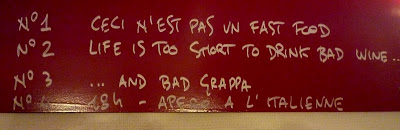 Nº1 CECI N'EST PAS UN FAST FOOD
Nº2 LIFE IS TOO SHORT TO DRINK BAD WINE...
Nº 3 ... AND BAD GRAPPA
Nº 18h - APERO A L'ITALIENNE